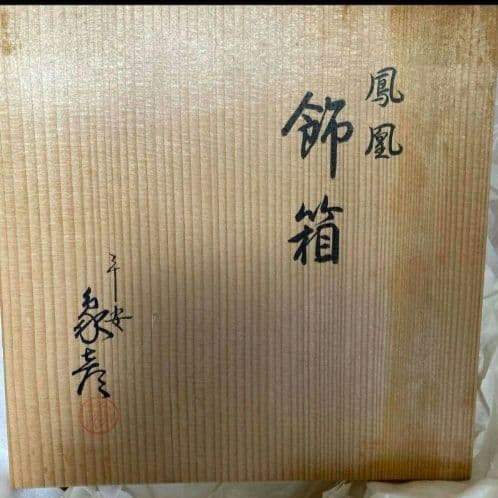 鳳凰
飾箱
平安
象彦